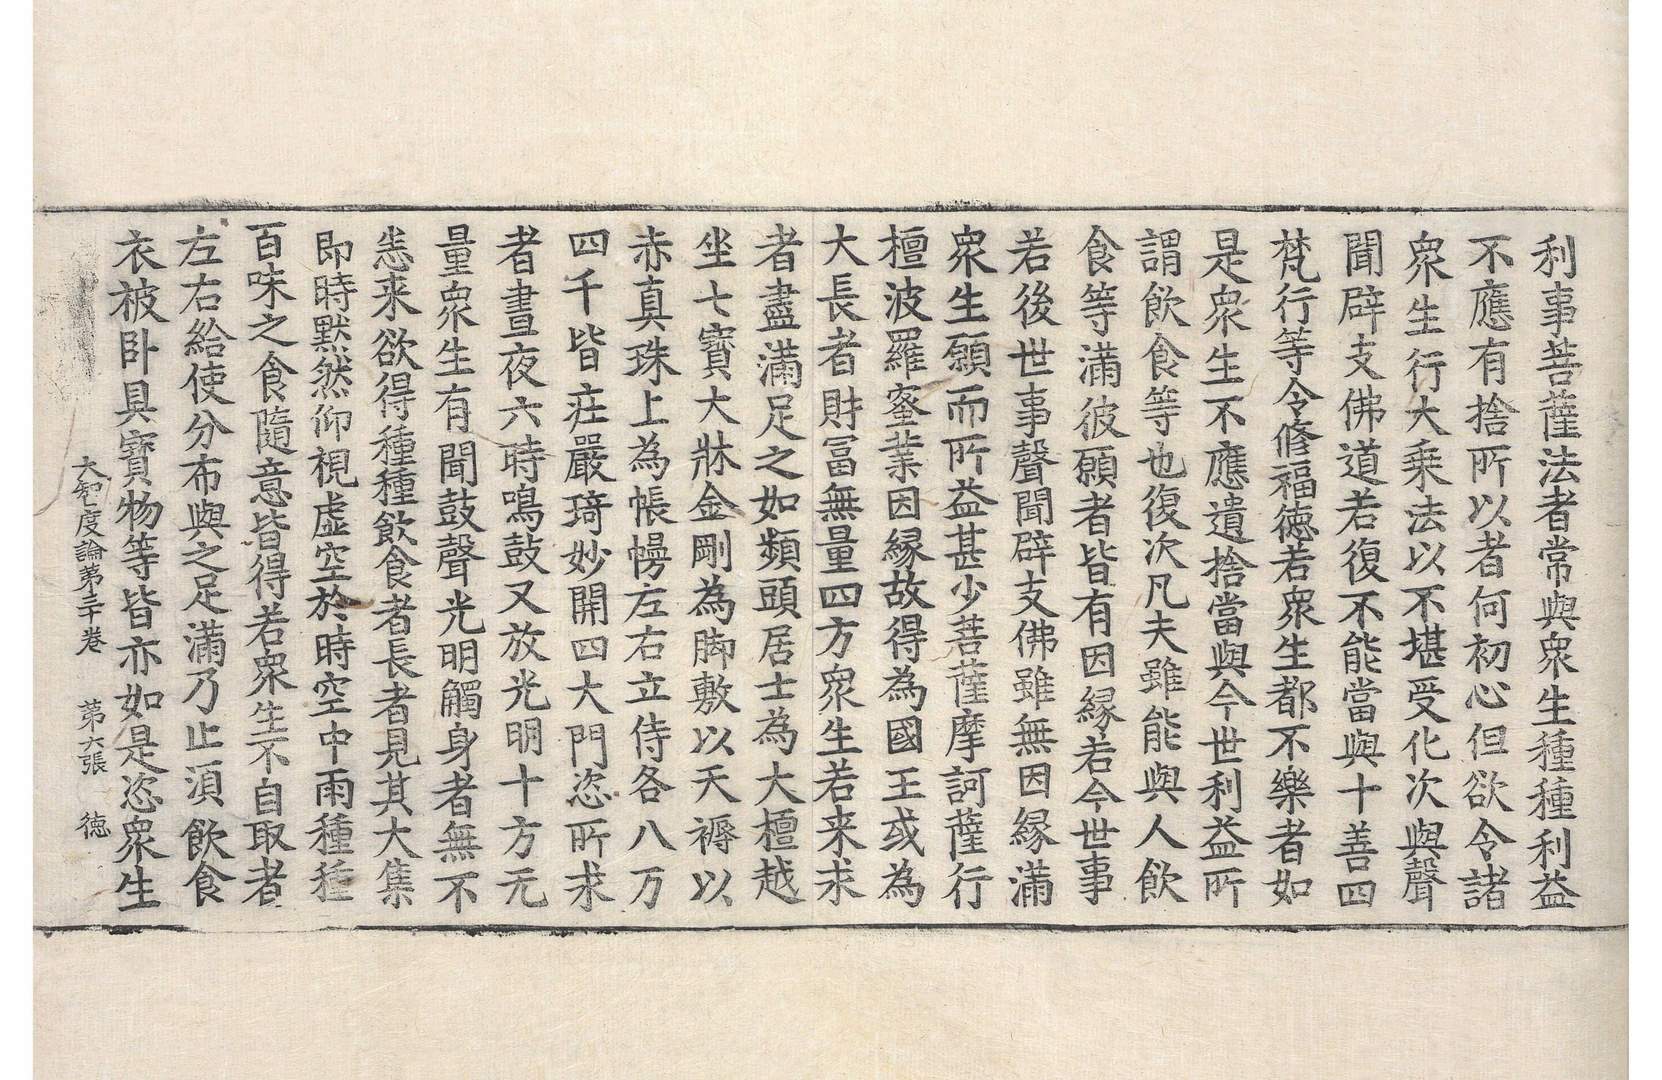 利事菩薩法者常與衆生種種利益
不應有捨所以者何初心但欲令諸
衆生行大乗法以不堪受化次與聲
聞辟支佛道若復不能當與十善四
梵行等令修福徳若衆生都不樂者如
是衆生不應遺捨當與今世利益所
謂飲食等也復次凡夫雖能與人飲
食等滿彼願者皆有因縁若今世事
若後世事聲聞辟支佛雖無因縁滿
衆生願而所益甚少菩薩摩訶薩行
檀波羅蜜業因縁故得為國王或為
大長者財冨無量四方衆生若来求
者盡滿足之如頻頭居士為大檀越
坐七寳大牀金剛為脚敷以天褥以
赤真珠上為帳幔左右立侍各八万
四千皆庄嚴琦妙開四大門恣所求
者晝夜六時鳴鼓又放光明十方无
量衆生有聞鼓聲光明觸身者無不
恙来欲得種種飲食者長者見其大集
即時默然仰視虚空於時空中雨種種
百味之食隨意皆得若衆生不自取者
左右給使分布與之足滿乃止湏飲食
衣被卧具寳物等皆亦如是恣衆生
大智度論第三十卷 第六張 徳